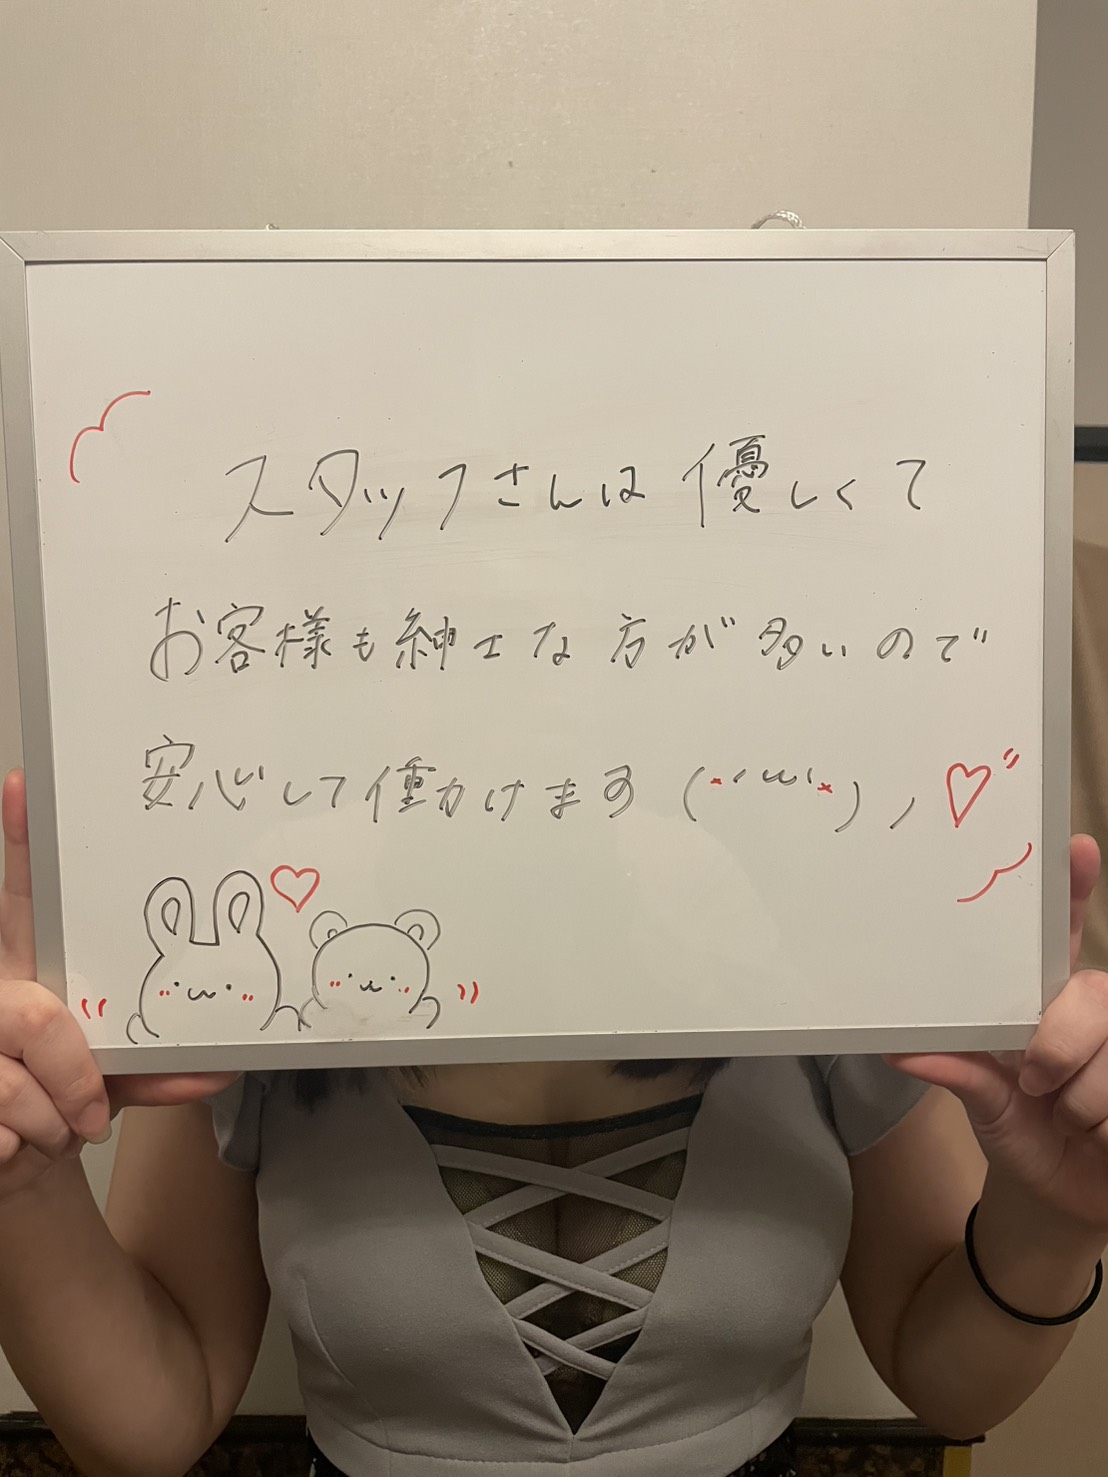 スタッフさんは優しくて
お客様も紳士な方が多いので
安心して働かけます (*´ω`*)ノ♡"